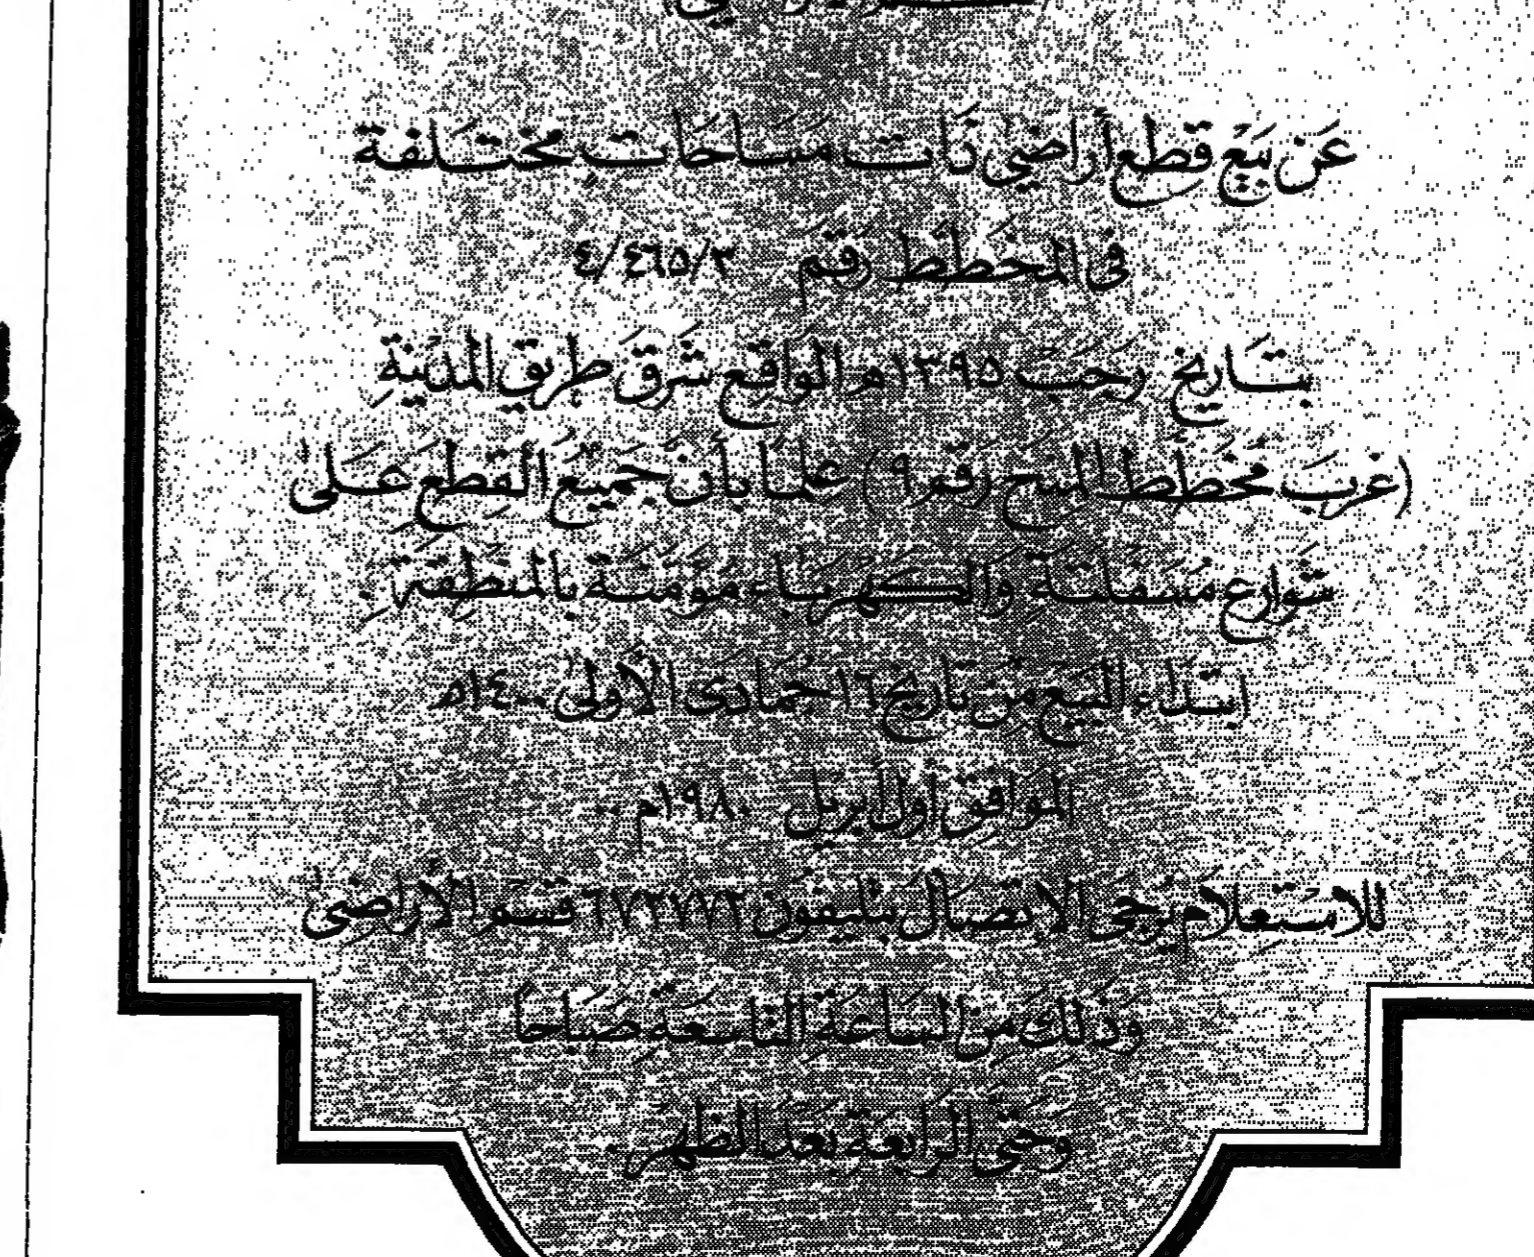 عَن بَيْع قطع أراضي ذَات مَسَاحَات مختَلفة
في المخَطط رَقم ٤/٤٦٥/٣
بتَاريخ رَجَبْ ١٣٩٥ه الوَاقِع شَرق طريق المدينةِ
(غربَ مخَطط المنبَح رَقم ٩) علمًا بأن جَميعُ القطع عَلى
شوارع مُسَفلتَةِ وَالكهرباء مُؤمنَة بالمنطِقةِ.
ابتدَاء البَيع من تاريخ ١٦ جُمادى الأولى ١٤٠٠ه
الموَافِق أول ابريل ١٩٨٠م..
للاستعلام يُرجى الإتصَال بتليفون ٦٧٢٧٧٢ قسم الأراضي
وَذلكَ مِن السَاعَة التاسعَة صَباحًا
وَحَتى الرابعَة بَعدَ الظهر.